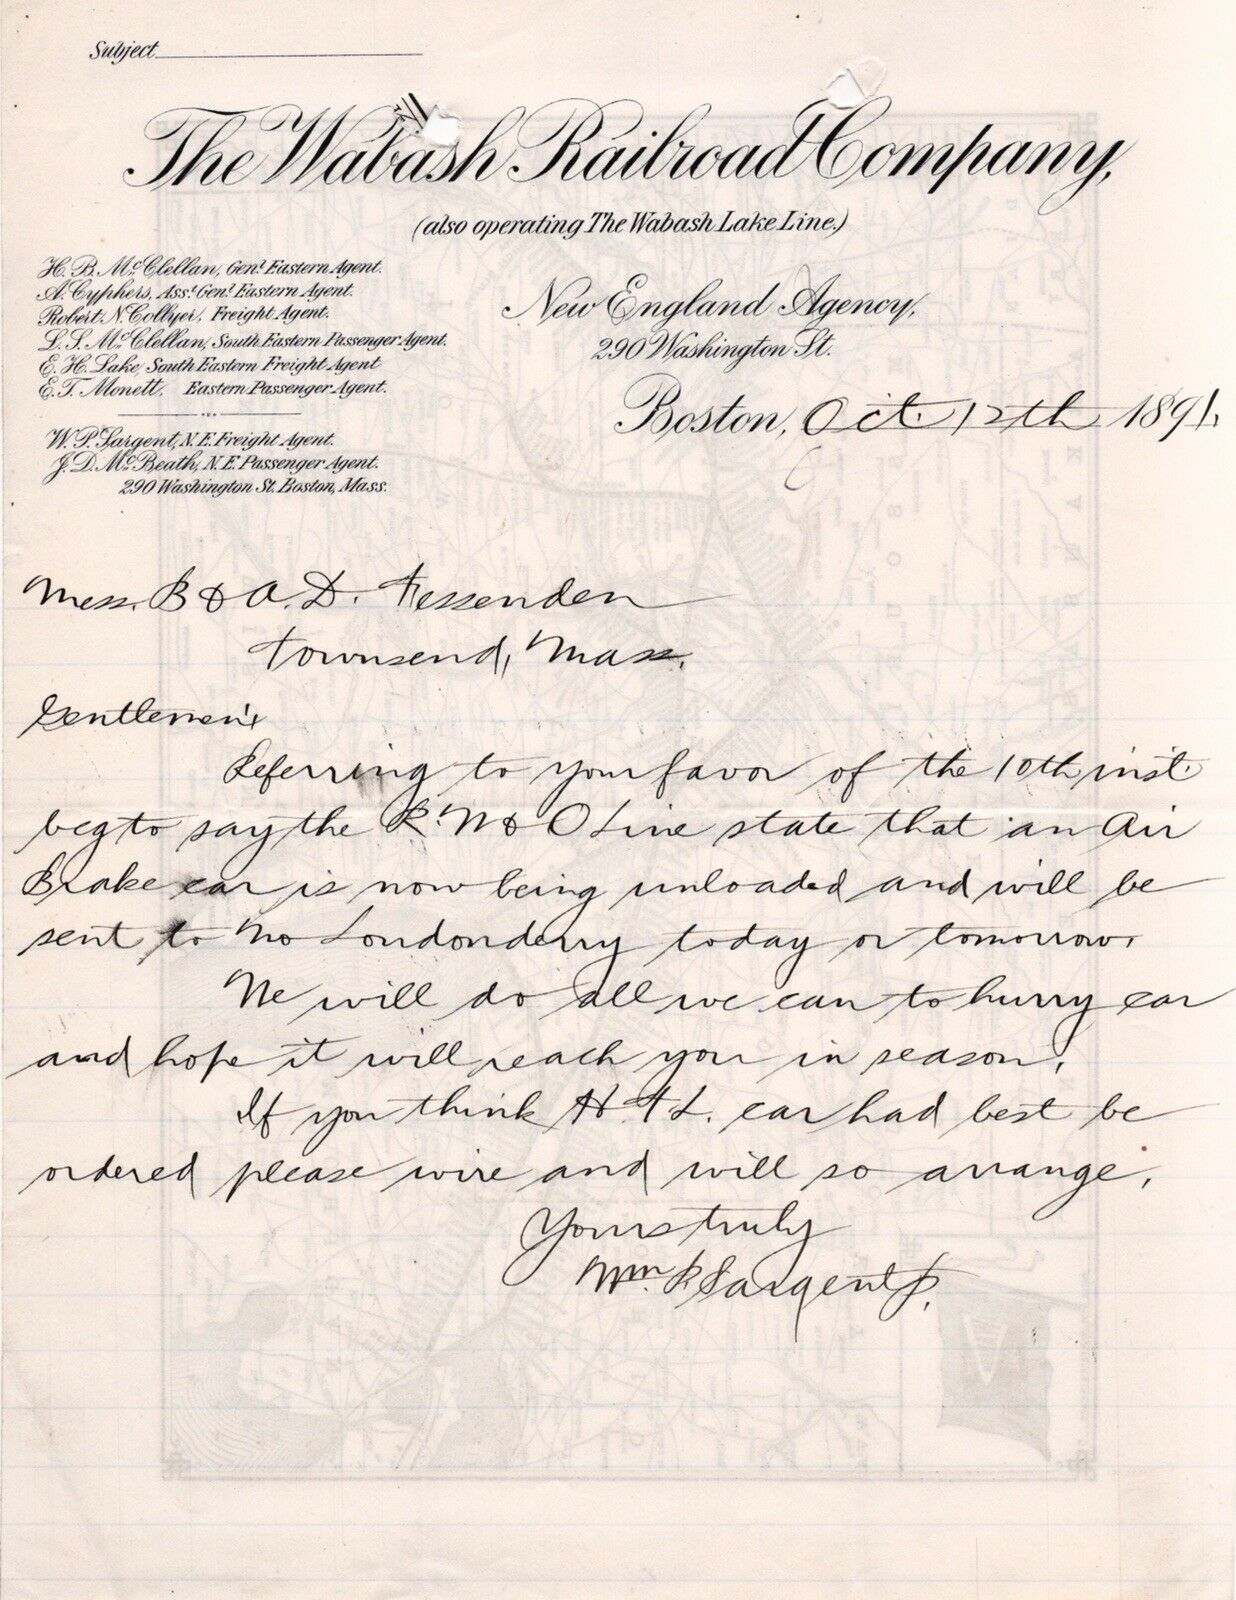 Subject
The Wabash Railroad Company,
(also operating The Wabash Lake Line.)
H. B. McClellan, Genl Eastern Agent.
A. Cyphers, Asst Genl Eastern Agent.
Robert N. Collyer, Freight Agent.
L. S. McClellan, South Eastern Passenger Agent.
E. H. Lake, South Eastern Freight Agent
E. T. Monett, Eastern Passenger Agent.
W. P. Sargent, N. E. Freight Agent.
J. D. McBeath, N. E. Passenger Agent.
290 Washington St. Boston, Mass.
New England Agency,
290 Washington St.
Boston, Oct. 12th 1891.
Mess. B & A. D. Fessenden
Townsend, Mass.
Gentlemen:
Referring to your favor of the 10th inst.
beg to say the R. W & O Line state that an Air
Brake car is now being unloaded and will be
sent to No Londonderry today or tomorrow.
We will do all we can to hurry car
and hope it will reach you in season.
If you think H. T L. car had best be
ordered please wire and will so arrange.
Yours truly
Wm. P. Sargent